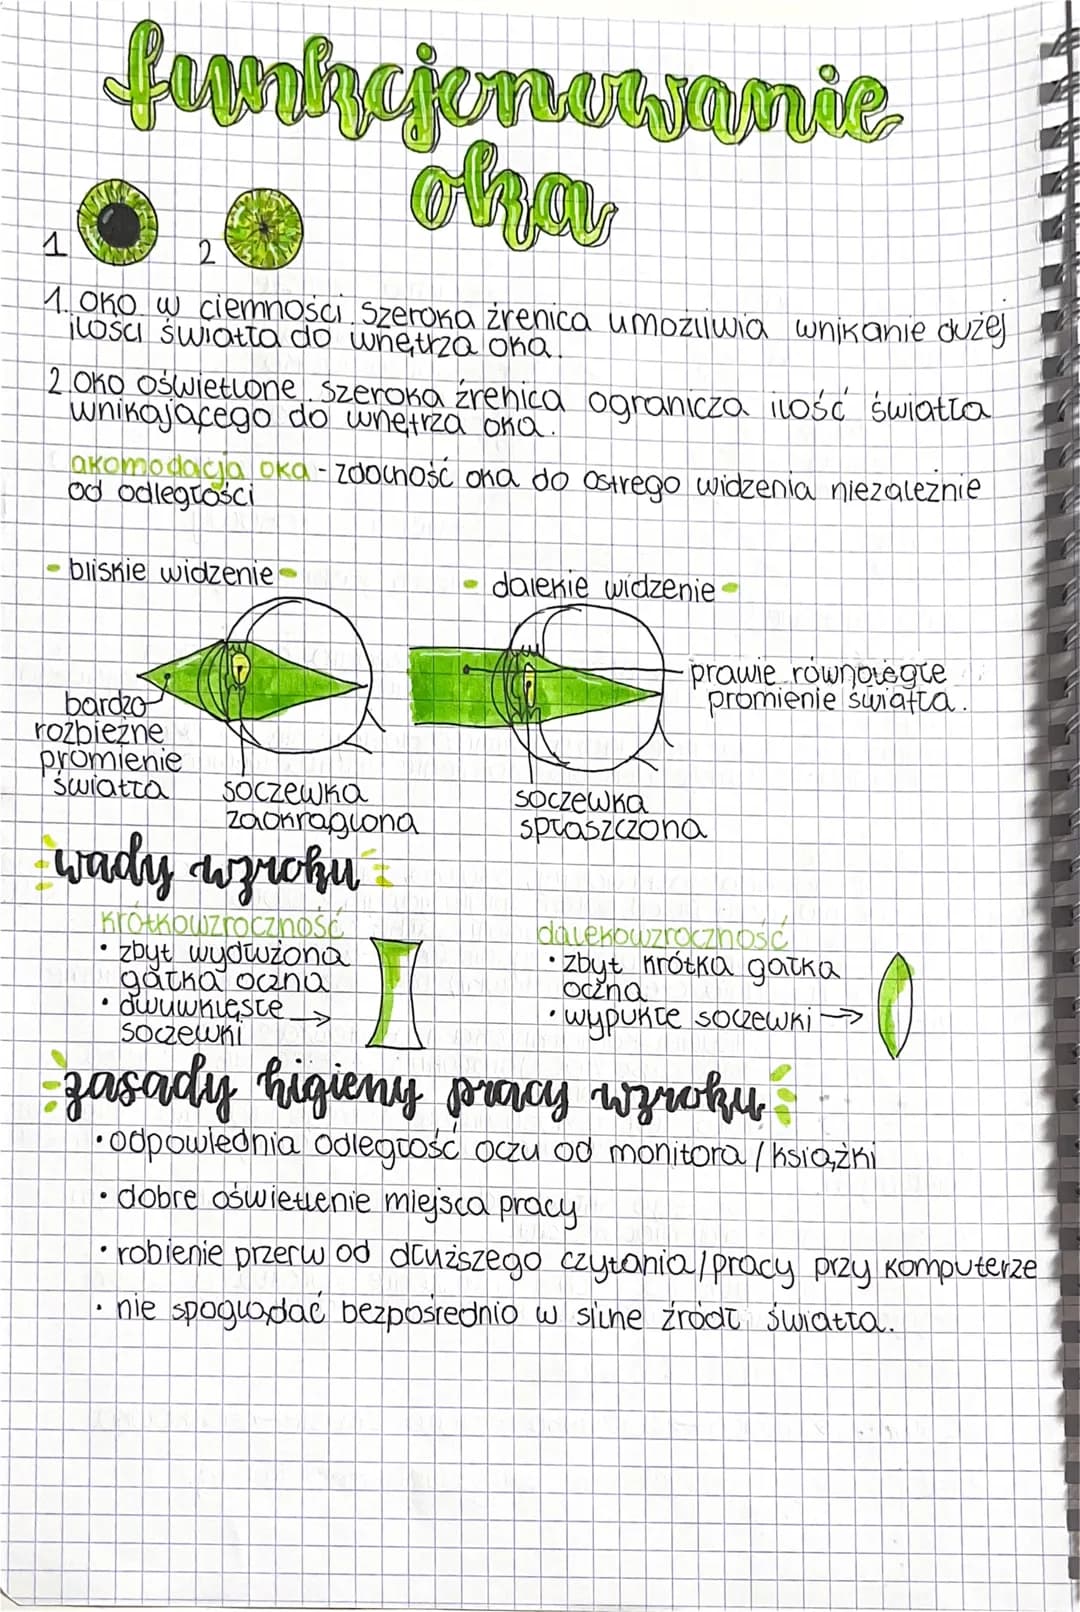 funkcjonowanie
oka
1 2
1. oko w ciemności. szeroka źrenica umożliwia wnikanie dużej
ilości światła do wnętrza oka.
2. oko oświetlone. szeroka źrenica ogranicza ilość światła
wnikającego do wnętrza oka.
akomodacja oka - zdolność oka do ostrego widzenia niezależnie
od odległości
- bliskie widzenie -
- dalekie widzenie -
bardzo
rozbieżne
promienie
światła
soczewka
zaokrąglona
prawie równoległe
promienie światła.
soczewka
spłaszczona
wady wzroku
krótkowzroczność
• zbyt wydłużona
gałka oczna
• dwuwklęsłe →
soczewki
dalekowzroczność
• zbyt krótka gałka
oczna
• wypukłe soczewki →
zasady higieny pracy wzroku
• odpowiednia odległość oczu od monitora / książki
• dobre oświetlenie miejsca pracy
• robienie przerw od dłuższego czytania / pracy przy komputerze
• nie spoglądać bezpośrednio w silne źródł światła.